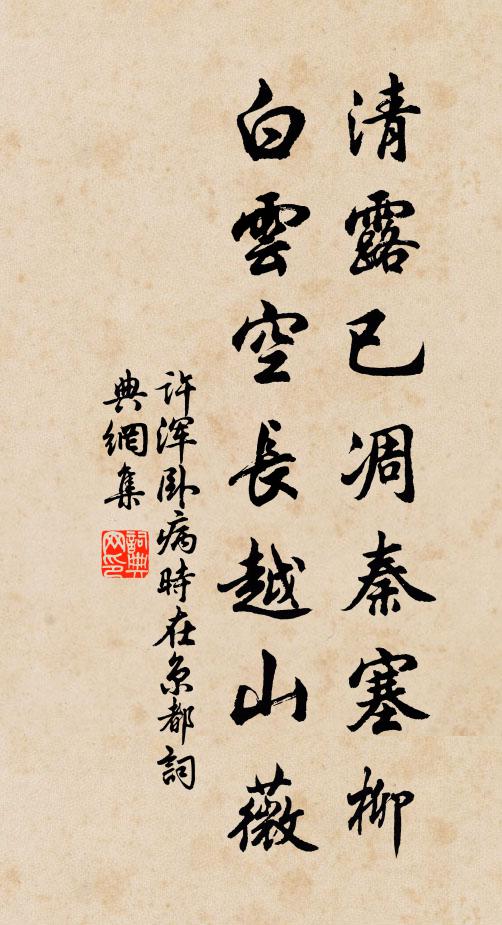 清露已凋秦塞柳
白雲空長越山薇
許渾卧病時在京都詞
典網集
詞典
网印